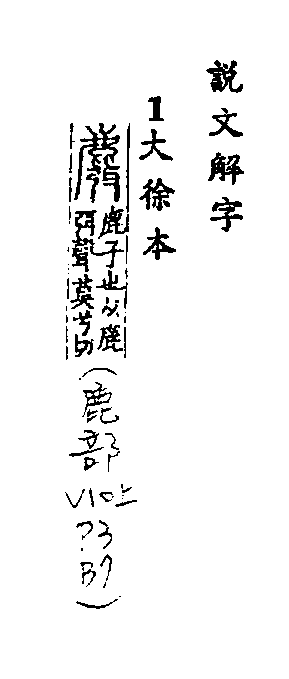 説文解字
1大徐本
麛
鹿子也从鹿
弭聲莫兮切
(鹿部V10上P3B7)